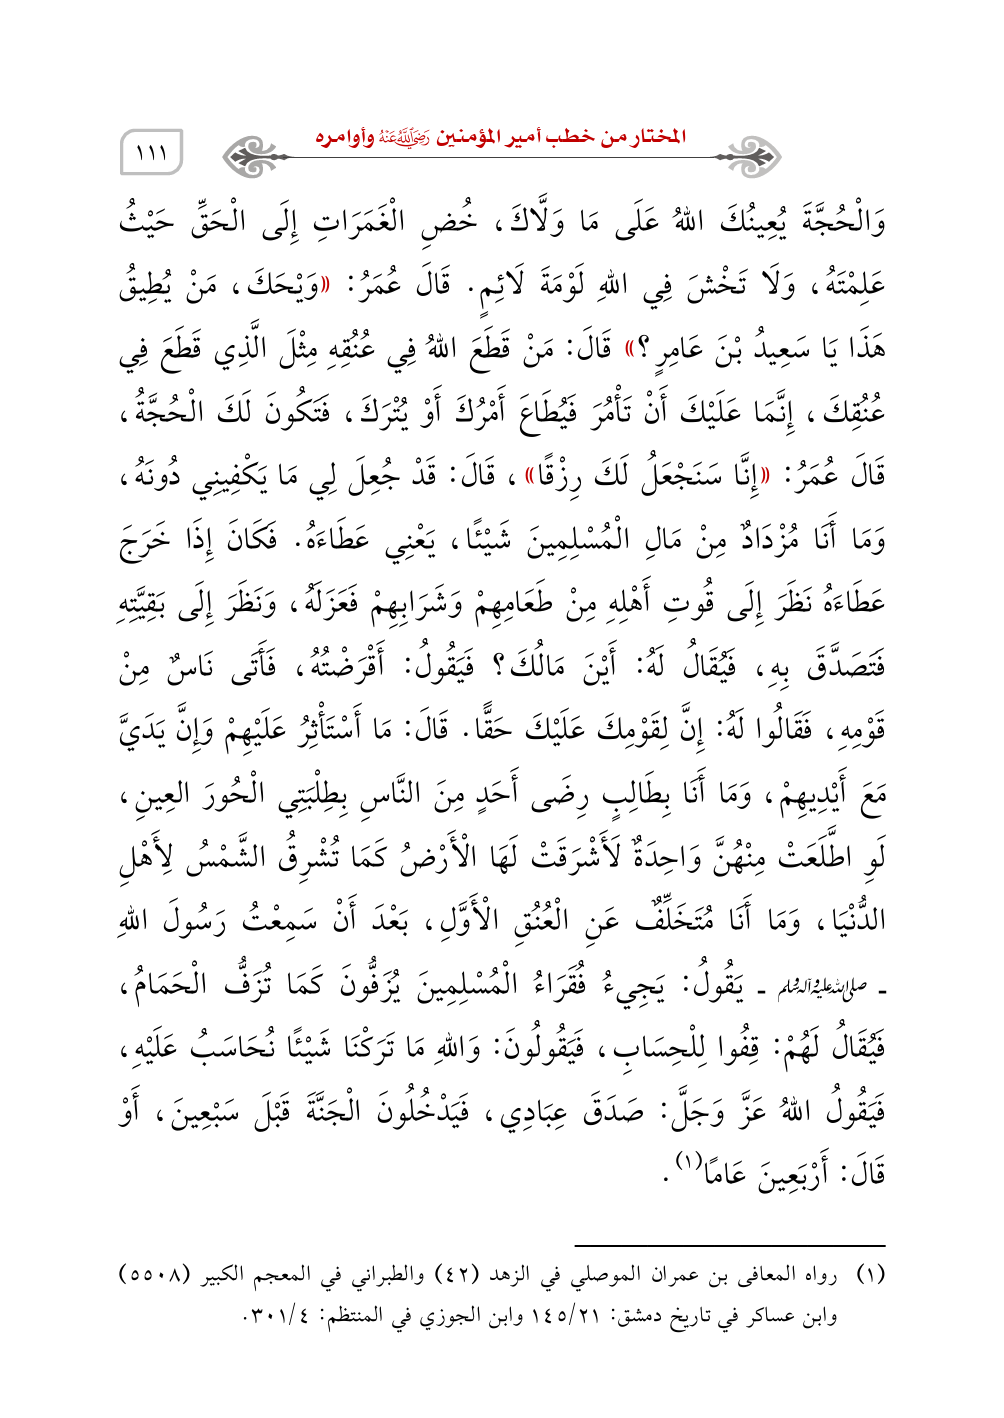 المختار من خطب أمير المؤمنين رَضِيَ اللَّهُ عَنْهُ وأوامره
١١١
وَالْحُجَّةَ يُعِينُكَ اللهُ عَلَى مَا وَلَّاكَ، خُضِ الْغَمَرَاتِ إِلَى الْحَقِّ حَيْثُ
عَلِمْتَهُ، وَلَا تَخْشَ فِي اللهِ لَوْمَةَ لَائِمٍ. قَالَ عُمَرُ: «وَيْحَكَ، مَنْ يُطِيقُ
هَذَا يَا سَعِيدُ بْنَ عَامِرٍ؟» قَالَ: مَنْ قَطَعَ اللهُ فِي عُنُقِهِ مِثْلَ الَّذِي قَطَعَ فِي
عُنُقِكَ، إِنَّمَا عَلَيْكَ أَنْ تَأْمُرَ فَيُطَاعَ أَمْرُكَ أَوْ يُتْرَكَ، فَتَكُونَ لَكَ الْحُجَّةُ،
قَالَ عُمَرُ: «إِنَّا سَنَجْعَلُ لَكَ رِزْقًا»، قَالَ: قَدْ جُعِلَ لِي مَا يَكْفِينِي دُونَهُ،
وَمَا أَنَا مُزْدَادٌ مِنْ مَالِ الْمُسْلِمِينَ شَيْئًا، يَعْنِي عَطَاءَهُ. فَكَانَ إِذَا خَرَجَ
عَطَاءَهُ نَظَرَ إِلَى قُوتِ أَهْلِهِ مِنْ طَعَامِهِمْ وَشَرَابِهِمْ فَعَزَلَهُ، وَنَظَرَ إِلَى بَقِيَّتِهِ
فَتَصَدَّقَ بِهِ، فَيُقَالُ لَهُ: أَيْنَ مَالُكَ؟ فَيَقُولُ: أَقْرَضْتُهُ، فَأَتَى نَاسٌ مِنْ
قَوْمِهِ، فَقَالُوا لَهُ: إِنَّ لِقَوْمِكَ عَلَيْكَ حَقًّا. قَالَ: مَا أَسْتَأْثِرُ عَلَيْهِمْ وَإِنَّ يَدَيَّ
مَعَ أَيْدِيهِمْ، وَمَا أَنَا بِطَالِبٍ رِضَى أَحَدٍ مِنَ النَّاسِ بِطِلْبَتِي الْحُورَ العِينِ،
لَوِ اطَّلَعَتْ مِنْهُنَّ وَاحِدَةٌ لَأَشْرَقَتْ لَهَا الْأَرْضُ كَمَا تُشْرِقُ الشَّمْسُ لِأَهْلِ
الدُّنْيَا، وَمَا أَنَا مُتَخَلِّفٌ عَنِ الْعُنُقِ الْأَوَّلِ، بَعْدَ أَنْ سَمِعْتُ رَسُولَ اللهِ
ـ صلى الله عليه وآله وسلم ـ يَقُولُ: يَجِيءُ فُقَرَاءُ الْمُسْلِمِينَ يُزَفُّونَ كَمَا تُزَفُّ الْحَمَامُ،
فَيُقَالُ لَهُمْ: قِفُوا لِلْحِسَابِ، فَيَقُولُونَ: وَاللهِ مَا تَرَكْنَا شَيْئًا نُحَاسَبُ عَلَيْهِ،
فَيَقُولُ اللهُ عَزَّ وَجَلَّ: صَدَقَ عِبَادِي، فَيَدْخُلُونَ الْجَنَّةَ قَبْلَ سَبْعِينَ، أَوْ
قَالَ: أَرْبَعِينَ عَامًا(١).
(١) رواه المعافى بن عمران الموصلي في الزهد (٤٢) والطبراني في المعجم الكبير (٥٥٠٨)
وابن عساكر في تاريخ دمشق: ١٤٥/٢١ وابن الجوزي في المنتظم: ٣٠١/٤.